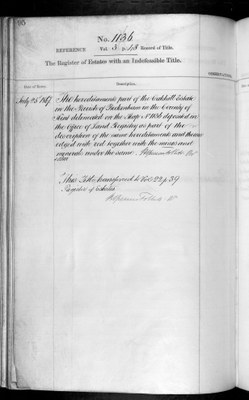 No. 1136
REFERENCE Vol. 3 p. 43 Record of Title.
The Register of Estates with an Indefeasible Title.
Date of Entry. Description.
The hereditaments part of the Oakhill Estate
in the Parish of Beckenham in the County of
Kent delineated on the Map No 1136 deposited in
the Office of Land Registry as part of the
description of the same hereditaments and thereon
edged with red together with the mines and
minerals under the same.
This Title transferred to Vol 23 p 39
Register of Estates